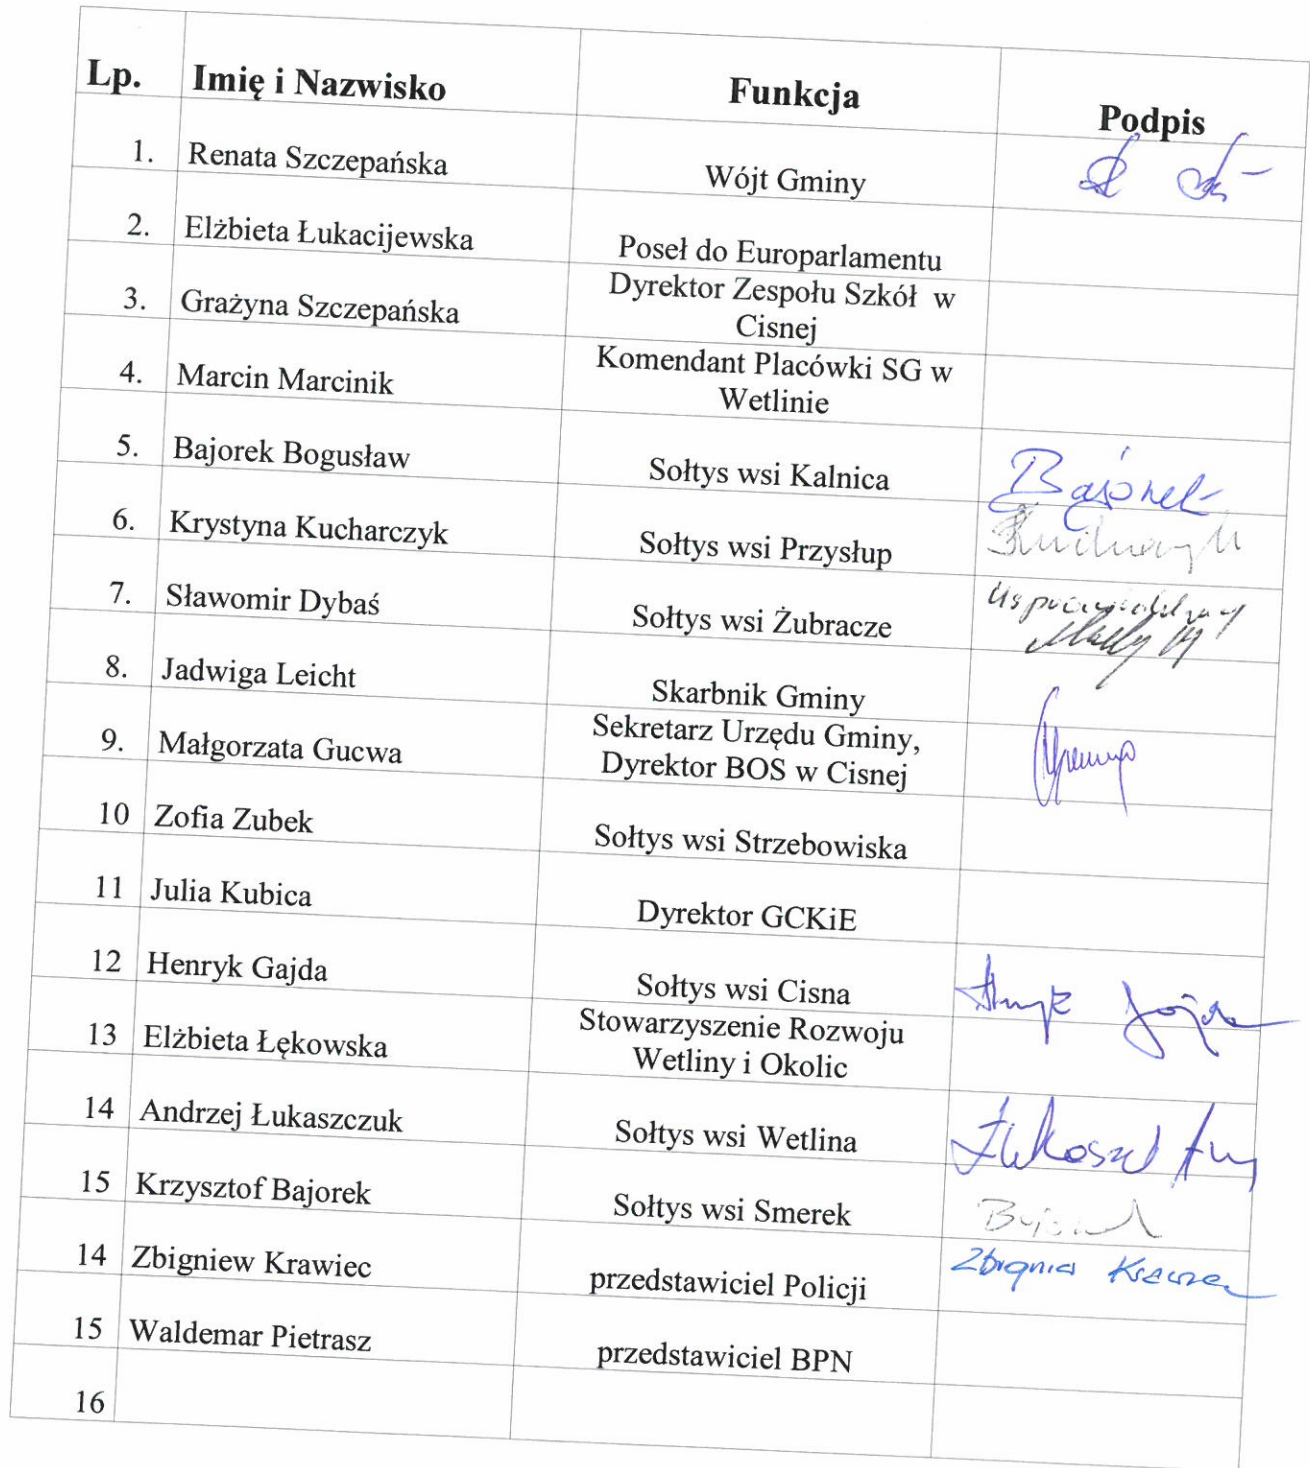 Lp. Imię i Nazwisko Funkcja Podpis
1. Renata Szczepańska Wójt Gminy
2. Elżbieta Łukacijewska Poseł do Europarlamentu
3. Grażyna Szczepańska Dyrektor Zespołu Szkół w
Cisnej
4. Marcin Marcinik Komendant Placówki SG w
Wetlinie
5. Bajorek Bogusław Sołtys wsi Kalnica Bajorek
6. Krystyna Kucharczyk Sołtys wsi Przysłup
7. Sławomir Dybaś Sołtys wsi Żubracze
8. Jadwiga Leicht Skarbnik Gminy
9. Małgorzata Gucwa Sekretarz Urzędu Gminy,
Dyrektor BOS w Cisnej
10 Zofia Zubek Sołtys wsi Strzebowiska
11 Julia Kubica Dyrektor GCKiE
12 Henryk Gajda Sołtys wsi Cisna Henryk Gajda
13 Elżbieta Łękowska Stowarzyszenie Rozwoju
Wetliny i Okolic
14 Andrzej Łukaszczuk Sołtys wsi Wetlina
15 Krzysztof Bajorek Sołtys wsi Smerek
14 Zbigniew Krawiec przedstawiciel Policji Zbigniew Krawiec
15 Waldemar Pietrasz przedstawiciel BPN
16